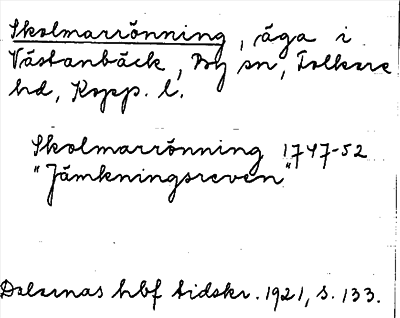 Skolmarrönning, äga i
Västanbäck, By sn, Folkare
hd, Kopp. l.
Skolmarrönning 1747-52
"Jämkningsreven"
Dalarnas hbf tidskr. 1921, s. 133.